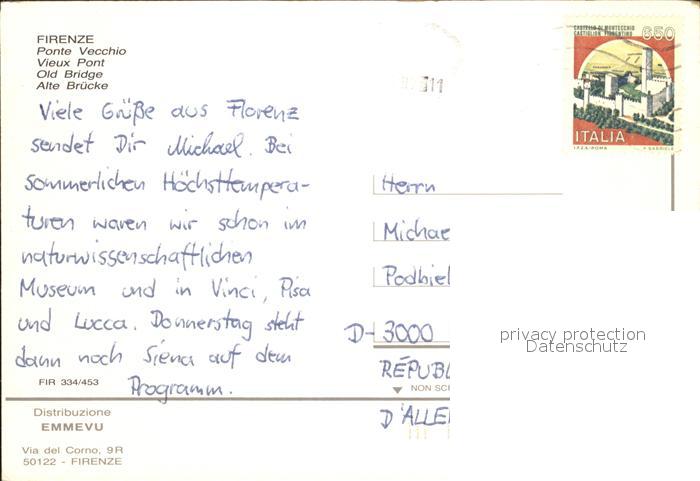 FIRENZE
Ponte Vecchio
Vieux Pont
Old Bridge
Alte Brücke
CASTELLO DI MONTECCHIO
CASTIGLION FIORENTINO
650
ITALIA
I.P.Z.S. ROMA
Viele Grüße aus Florenz
sendet Dir Michael. Bei
sommerlichen Höchsttempera-
turen waren wir schon im
naturwissenschaftlichen
Museum und in Vinci, Pisa
und Lucca. Donnerstag steht
dann noch Siena auf dem
Programm.
Herrn
Michae
Podbiel
D-3000
RÉPUBL
D'ALLE
privacy protection
Datenschutz
FIR 334/453
NON SC
Distribuzione
EMMEVU
Via del Corno, 9R
50122 - FIRENZE